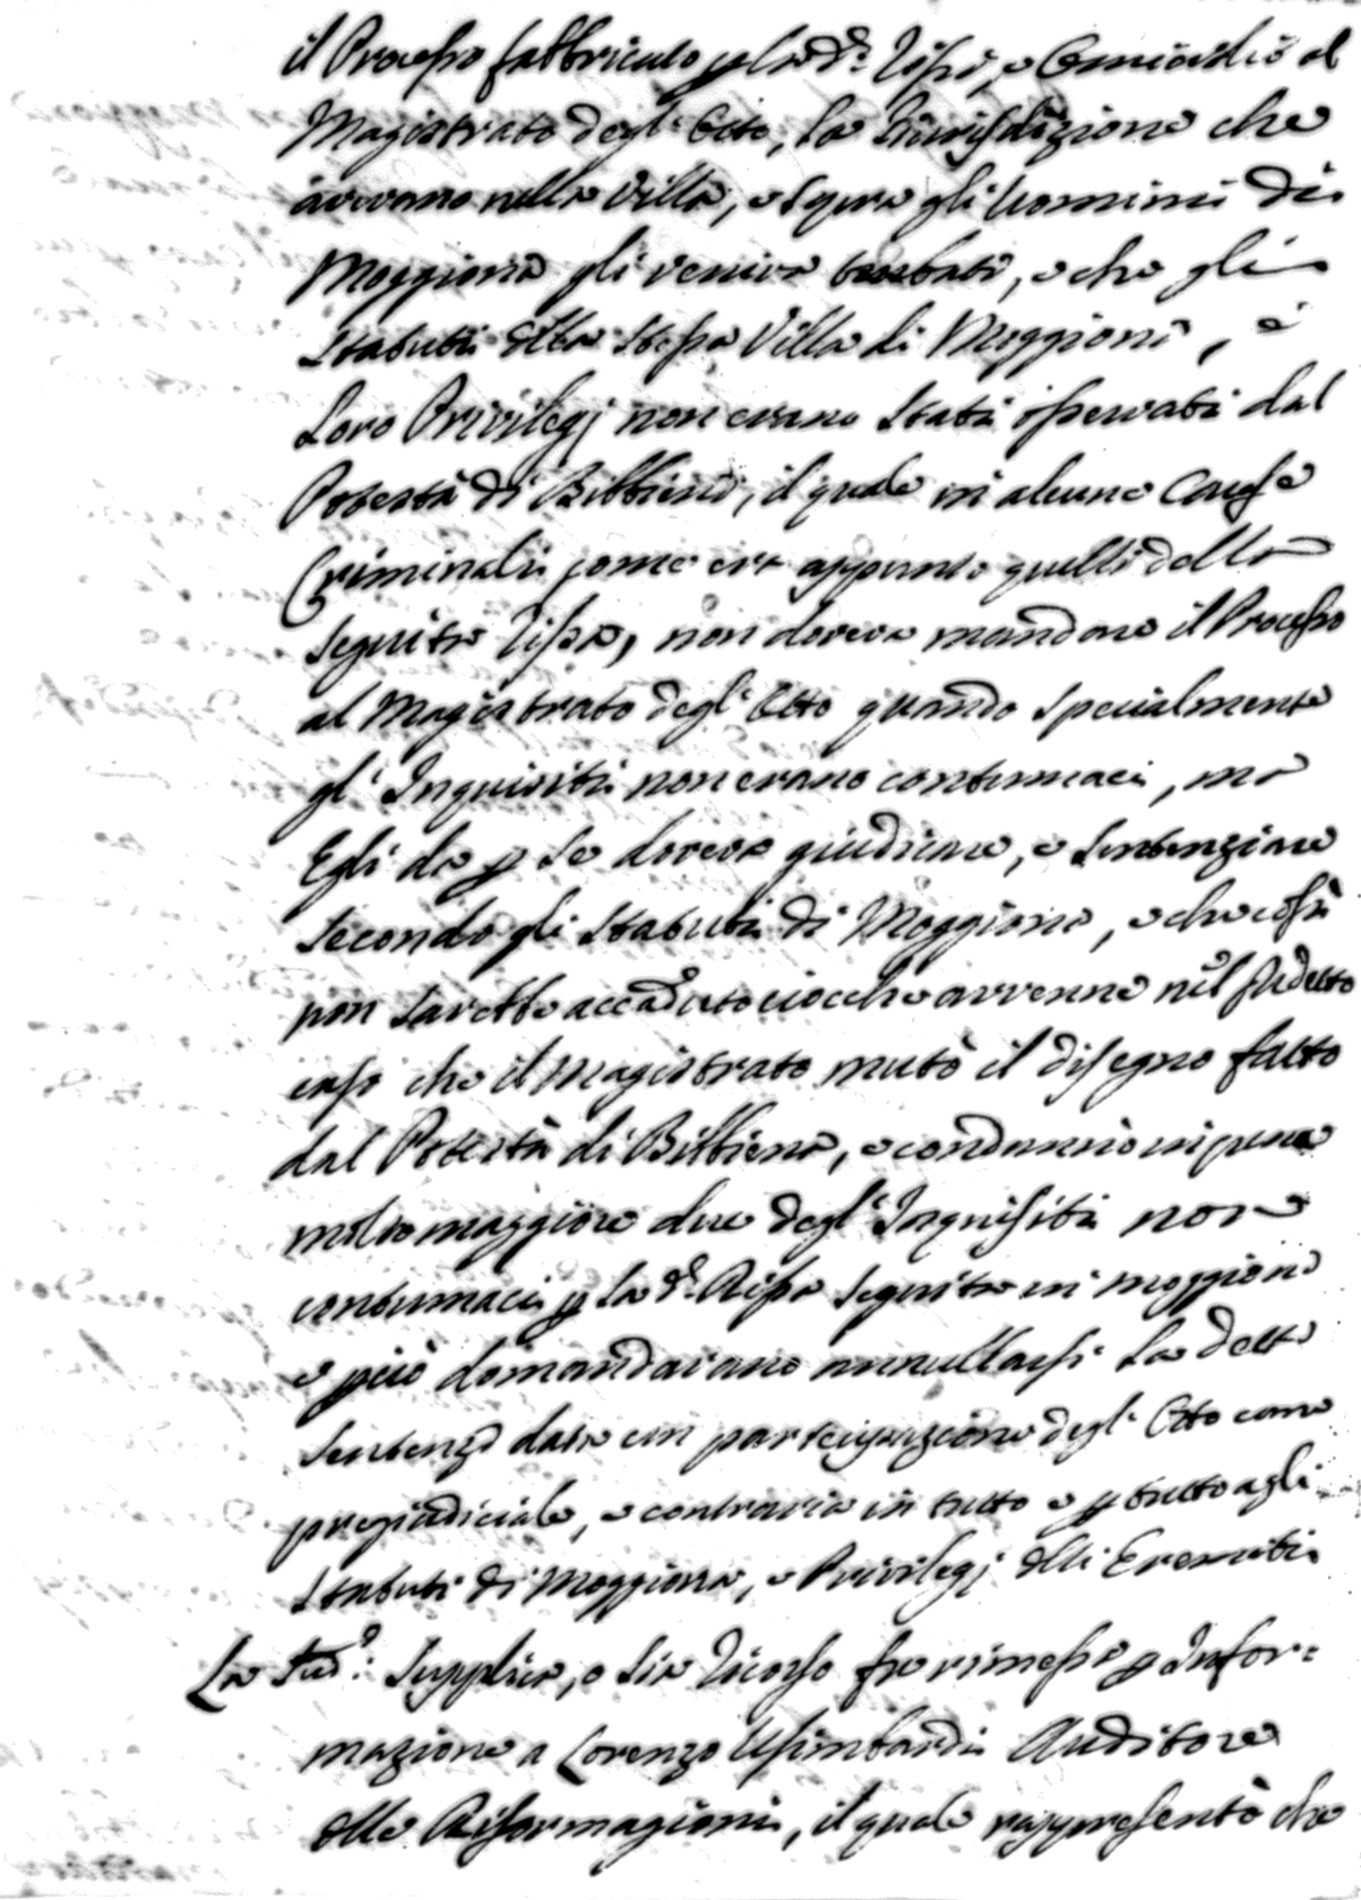 il Processo fabbricato p la d.ª Rissa, e Omicidio al
Magistrato degl' Otto, la Giurisdizione che
avevano nella Villa, e sopra gli Uomini di
Moggiona gli veniva turbata, e che gli
Statuti della stessa Villa di Moggiona, e
Loro Privilegj non erano stati osservati dal
Potestà di Bibbiena, il quale in alcune Cause
Criminali come era appunto quella della
seguita Rissa, non doveva mandare il Processo
al Magistrato degl' Otto quando specialmente
gl' Inquisiti non erano contumaci, ma
Egli da p se doveva giudicare, e sentenziare
secondo gli Statuti di Moggiona, e che così
non sarebbe accaduto ciocche avvenne nel sudetto
caso che il Magistrato mutò il disegno fatto
dal Potestà di Bibbiena, e condannò in pena
molto maggiore due degl' Inquisiti non
contumaci p la d.ª Rissa seguita in Moggiona
e però domandavano annullarsi la detta
sentenza data con partecipazione degl' Otto come
pregiudiciale, e contraria in tutto e p tutto agli
Statuti di Moggiona, e Privilegj delli Eremiti
La sud.ª: Supplica, o sia Ricorso fu rimessa p Infor=
mazione a Lorenzo Usimbardi Auditore
delle Riformagioni, il quale rappresentò che